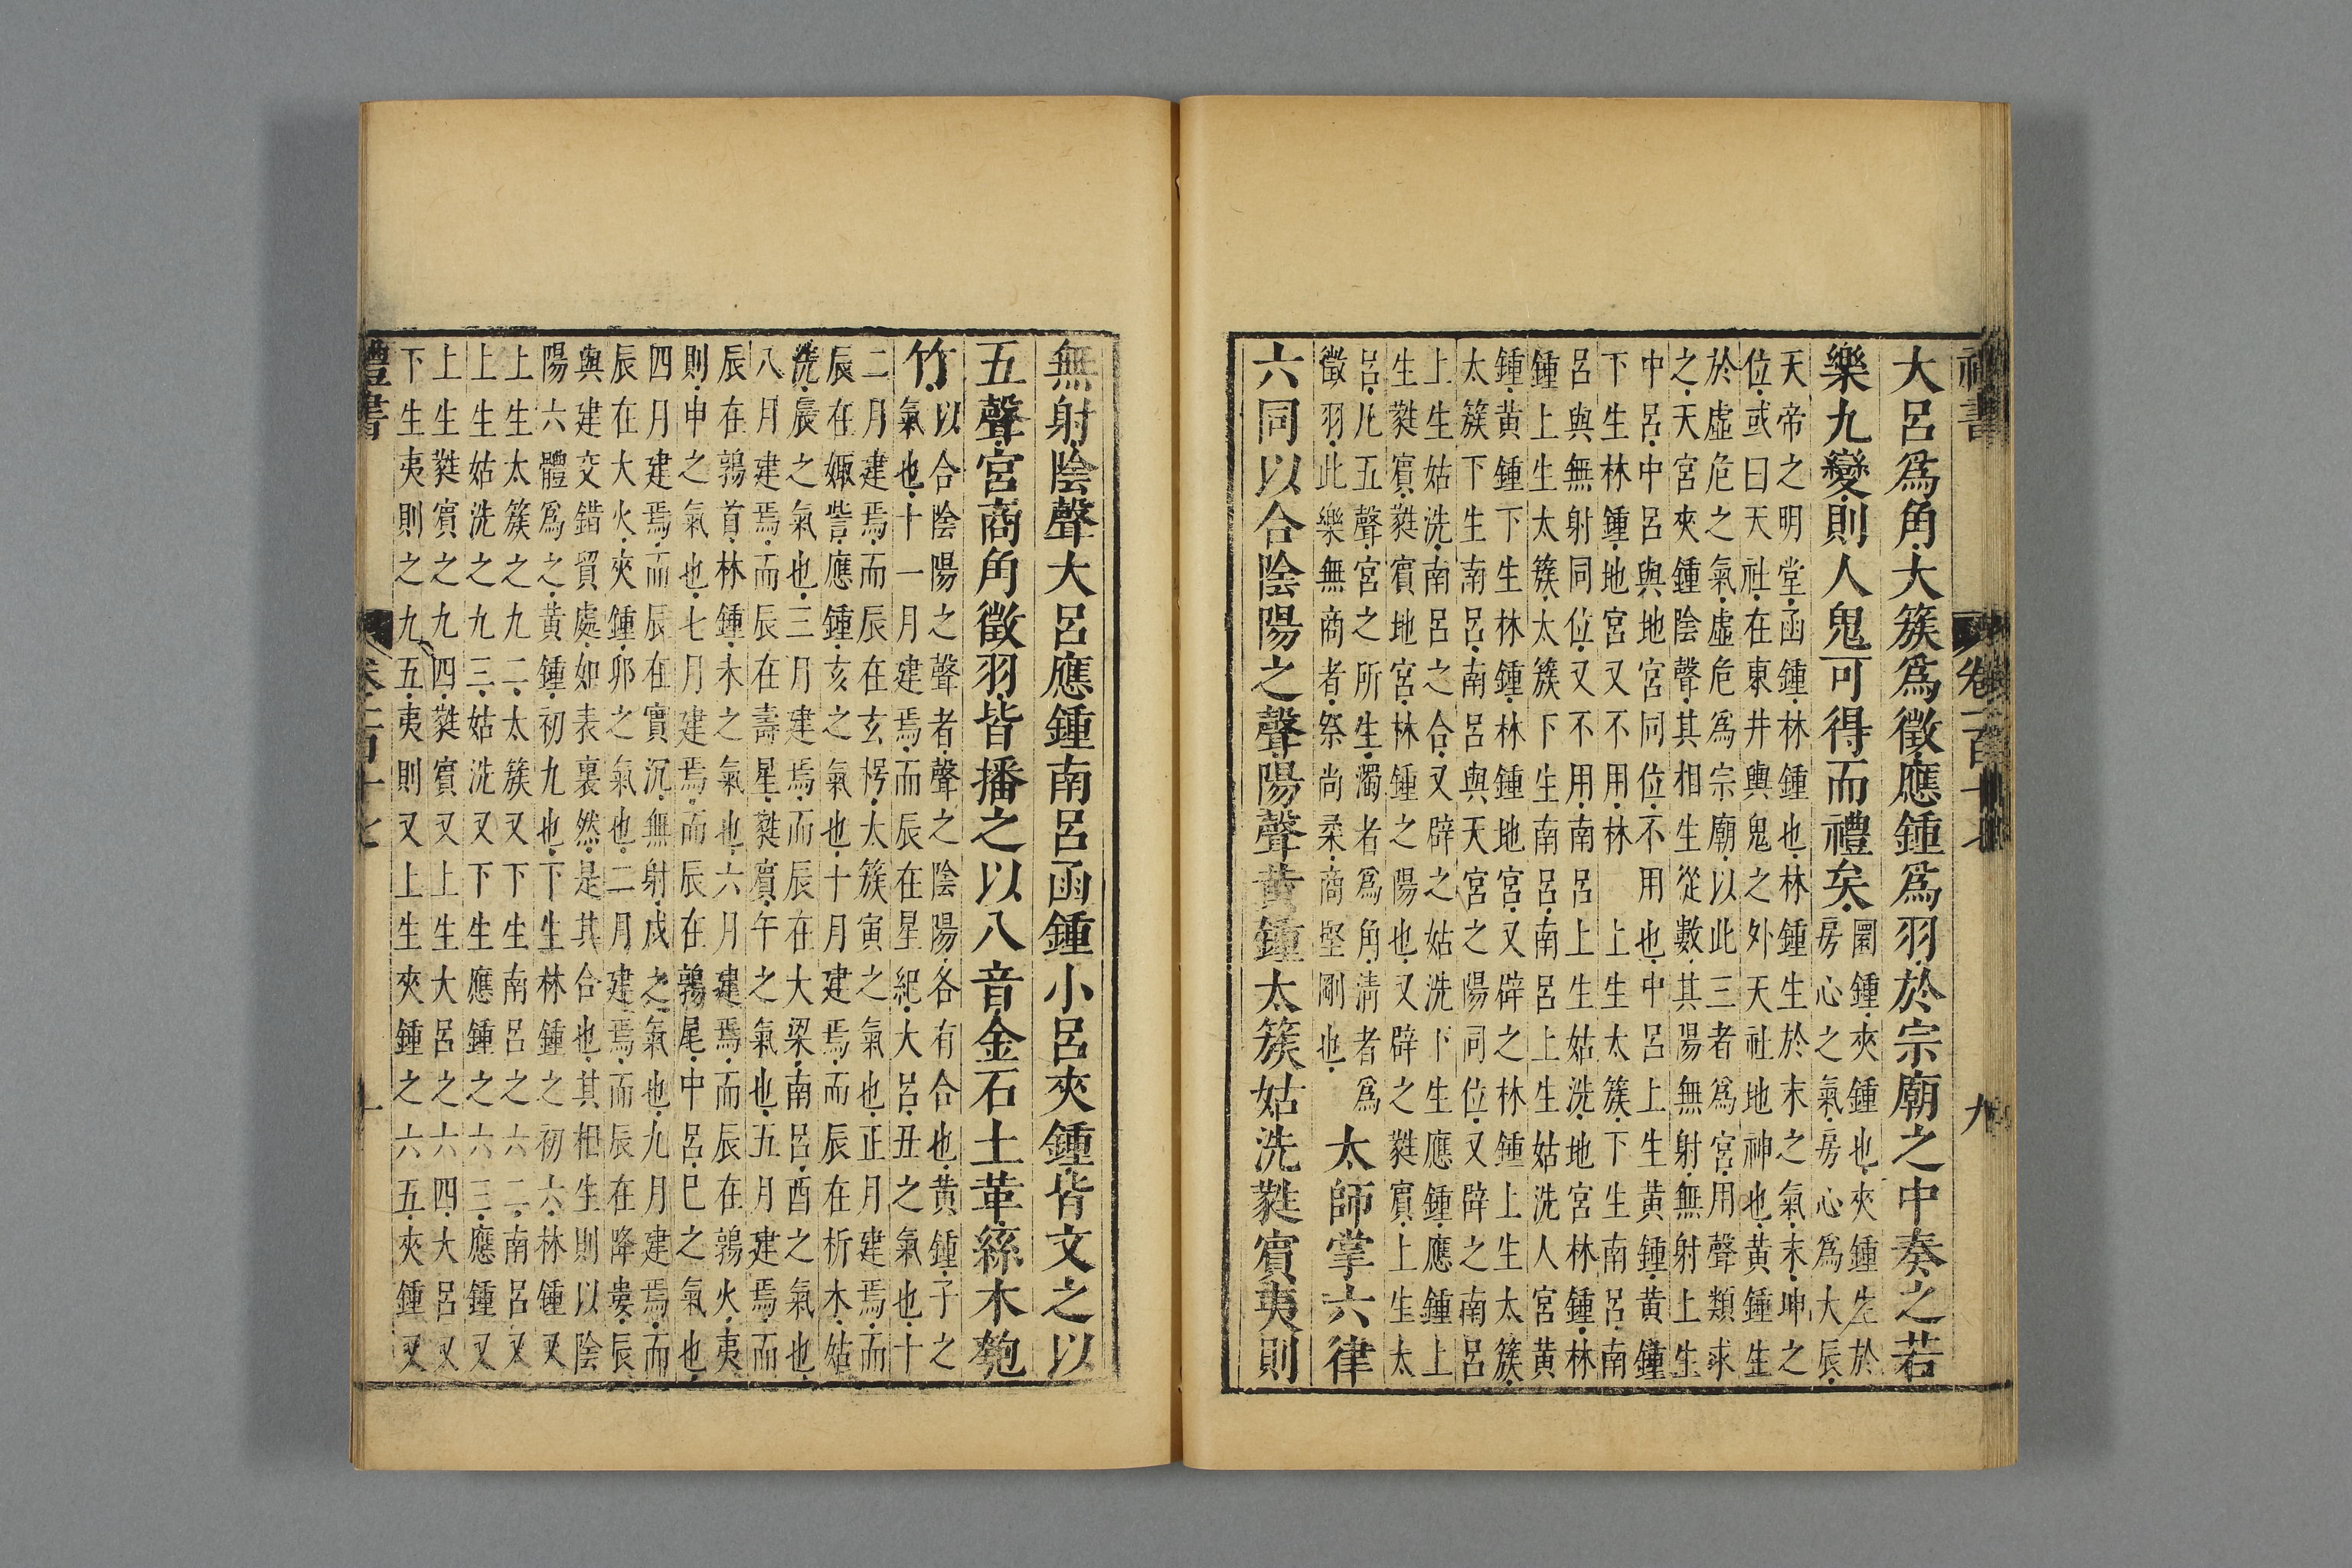 禮書　卷一百十七　九
大呂爲角大簇爲徵應鍾爲羽於宗廟之中奏之若
樂九變則人鬼可得而禮矣
圜鍾夾鍾也夾鍾生於
房心之氣房心爲大辰
天帝之明堂函鍾林鍾也林鍾生於末之氣末坤之
位或曰天社在東井輿鬼之外天社地神也黃鍾生
於虛危之氣虛危爲宗廟以此三者爲宮用聲類求
之天宮夾鍾陰聲其相生從數其陽無射無射上生
中呂中呂與地宮同位不用也中呂上生黃鍾黃鍾
下生林鍾地宮又不用林　上生太簇下生南呂南
呂與無射同位又不用南呂上生姑洗地宮林鍾林
鍾上生太簇太簇下生南呂南呂上生姑洗人宮黃
鍾黃鍾下生林鍾林鍾地宮又辟之林鍾上生太簇
太簇下生南呂南呂與天宮之陽同位又辟之南呂
上生姑洗南呂之合又辟之姑洗下生應鍾應鍾上
生蕤賓蕤賓地宮林鍾之陽也又辟之蕤賓上生太
呂凡五聲宮之所生濁者爲角清者爲
徵羽此樂無商者祭尚柔商堅剛也
太師掌六律
六同以合陰陽之聲陽聲黃鍾太簇姑洗蕤賓夷則
無射陰聲大呂應鍾南呂函鍾小呂夾鍾皆文之以
五聲宮商角徵羽皆播之以八音金石土革絲木匏
竹
以合陰陽之聲者聲之陰陽各有合也黃鍾子之
氣也十一月建焉而辰在星紀大呂丑之氣也十
二月建焉而辰在玄枵太簇寅之氣也正月建焉而
辰在娵訾應鍾亥之氣也十月建焉而辰在析木姑
洗辰之氣也三月建焉而辰在大梁南呂酉之氣也
八月建焉而辰在壽星蕤賓午之氣也五月建焉而
辰在鶉首林鍾未之氣也六月建焉而辰在鶉火夷
則申之氣也七月建焉而辰在鶉尾中呂巳之氣也
四月建焉而辰在實沉無射戌之氣也九月建焉而
辰在大火夾鍾卯之氣也二月建焉而辰在降婁辰
與建交錯貿處如表裏然是其合也其相生則以陰
陽六體爲之黃鍾初九也下生林鍾之初六林鍾又
上生太簇之九二太簇又下生南呂之六二南呂又
上生姑洗之九三姑洗又下生應鍾之六三應鍾又
上生蕤賓之九四蕤賓又上生大呂之六四大呂又
下生夷則之九五夷則又上生夾鍾之六五夾鍾又
禮書　卷一百十七　十